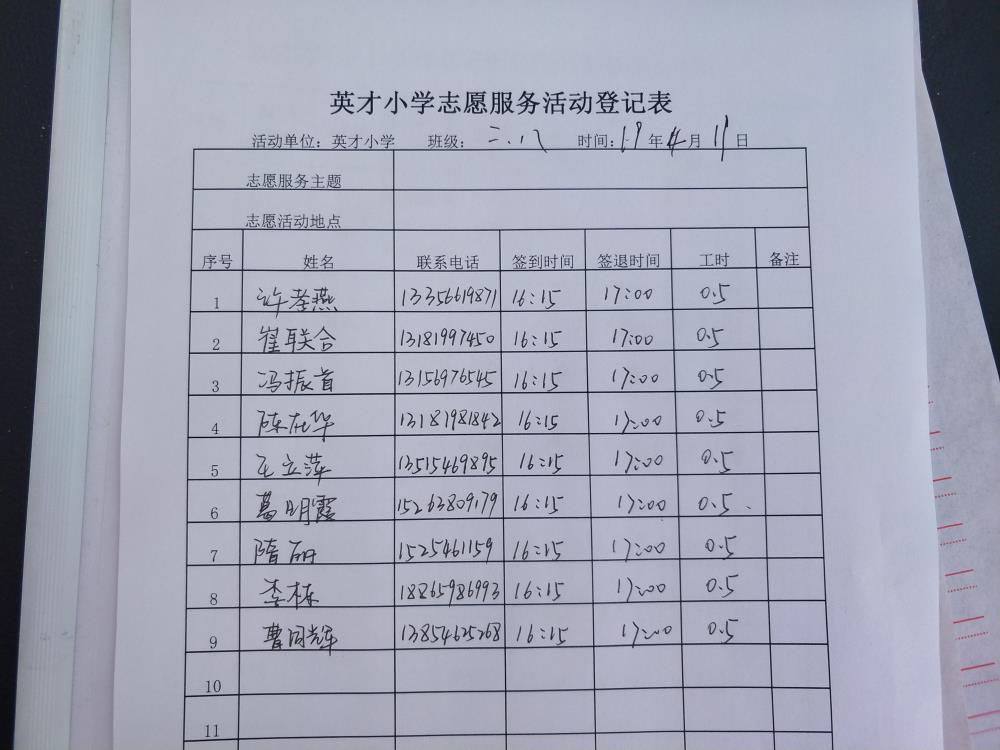 英才小学志愿服务活动登记表
活动单位：英才小学 班级：三.八 时间：19年4月11日
志愿服务主题
志愿活动地点
序号 姓名 联系电话 签到时间 签退时间 工时 备注
1 许孝燕 13356619871 16:15 17:00 0.5
2 崔联合 13181997450 16:15 17:00 0.5
3 冯振首 13156976545 16:15 17:00 0.5
4 陈在华 13181981842 16:15 17:00 0.5
5 王立萍 13515469895 16:15 17:00 0.5
6 葛明霞 15263809179 16:15 17:00 0.5
7 隋丽 1525461159 16:15 17:00 0.5
8 李栋 18865986993 16:15 17:00 0.5
9 曹同辉 13854625268 16:15 17:00 0.5
10
11